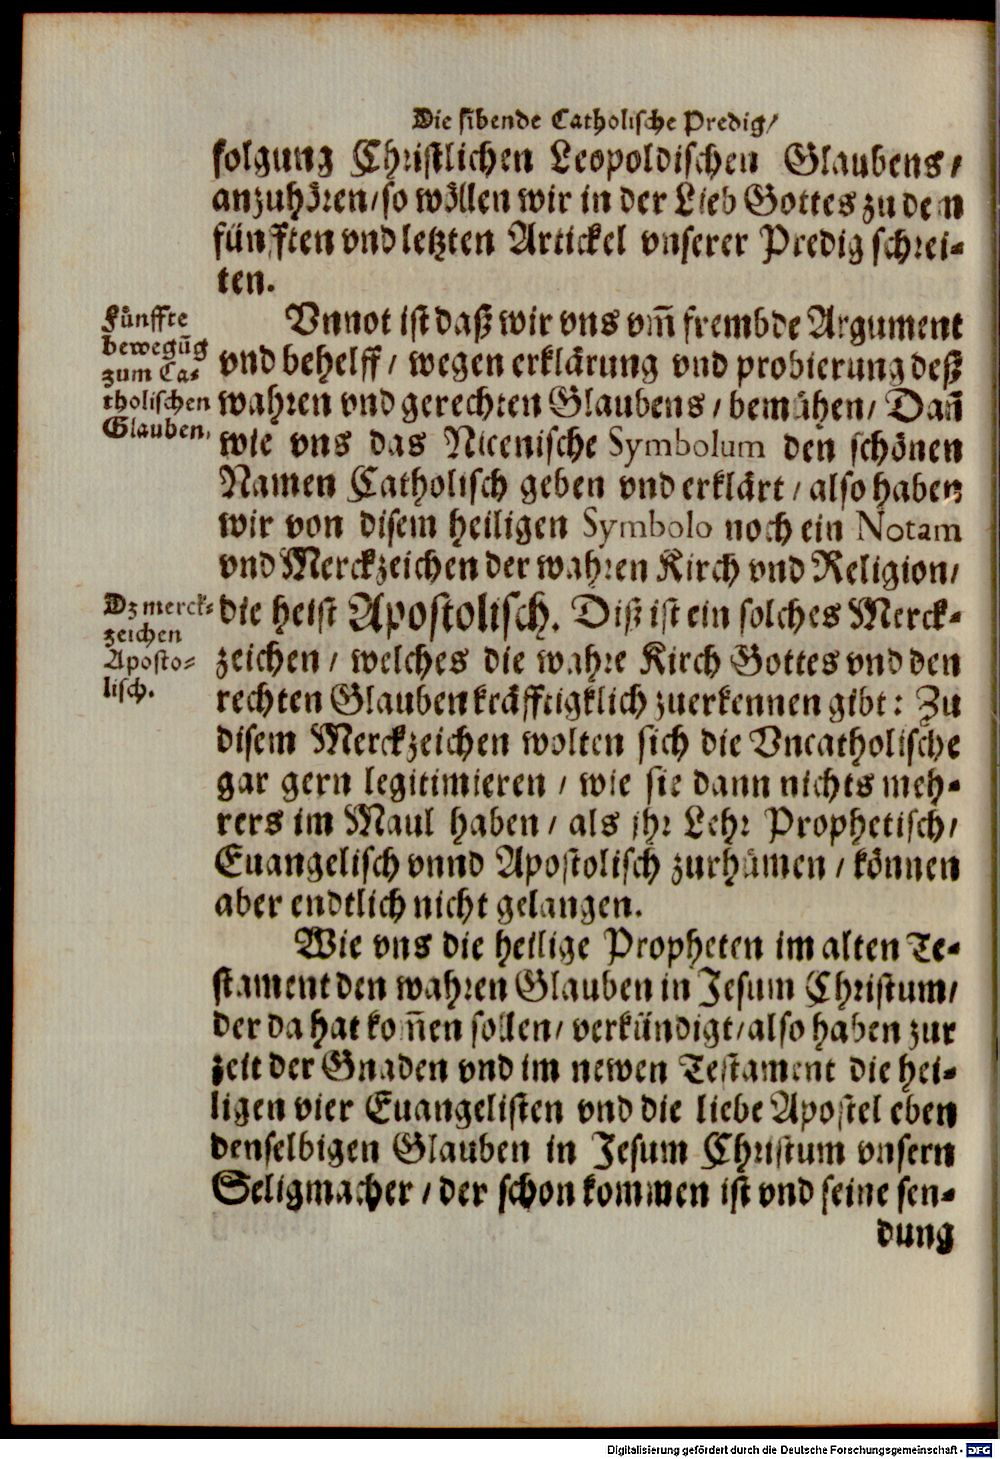 Die sibende Catholische Predig/
folgung Christlichen Leopoldischen Glaubens/
anzuhören/so wöllen wir in der Lieb Gottes zu dem
fünfften vnd letzten Artickel vnserer Predig schrei-
ten.
Fünffte
bewegũg
zum Ca-
tholischen
Glauben.
Vnnot ist daß wir vns vm̃ frembde Argument
vnd behelff/ wegen erklärung vnd probierung deß
wahren vnd gerechten Glaubens/bemühen/ Dañ
wie vns das Nicenische Symbolum den schönen
Namen Catholisch geben vnd erklärt/also haben
wir von disem heiligen Symbolo noch ein Notam
vnd Merckzeichen der wahren Kirch vnd Religion/
Dz merck-
zeichen
Aposto-
lisch.
die heist Apostolisch. Diß ist ein solches Merck-
zeichen/ welches die wahre Kirch Gottes vnd den
rechten Glauben kräfftigklich zuerkennen gibt: Zu
disem Merckzeichen wolten sich die Vncatholische
gar gern legitimieren/ wie sie dann nichts meh-
rers im Maul haben/ als jhr Lehr Prophetisch/
Euangelisch vnnd Apostolisch zurhümen/können
aber endtlich nicht gelangen.
Wie vns die heilige Propheten im alten Te-
stament den wahren Glauben in Jesum Christum/
der da hat kom̃en sollen/ verkündigt/also haben zur
zeit der Gnaden vnd im newen Testament die hei-
ligen vier Euangelisten vnd die liebe Apostel eben
denselbigen Glauben in Jesum Christum vnsern
Seligmacher/der schon kommen ist vnd seine sen-
dung
Digitalisierung gefördert durch die Deutsche Forschungsgemeinschaft - DFG